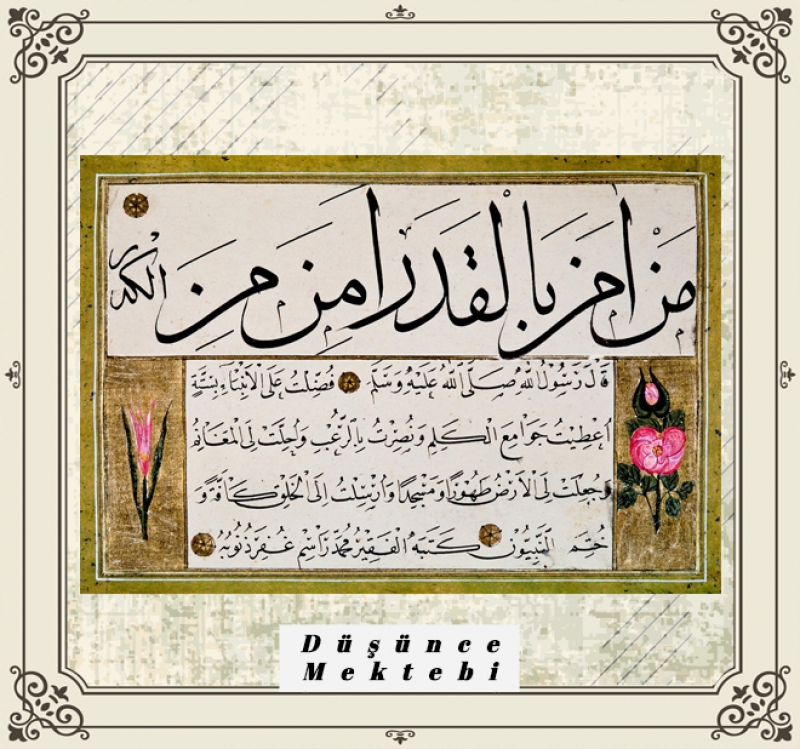 من امن بالقدر امن من الكدر
قال رسول الله صلى الله عليه وسلم فضلت على الانبياء بستة
اعطيت جوامع الكلم ونصرت بالرعب واحلت لى المغانم
وجعلت لى الارض طهورا ومسجدا وارسلت الى الخلق كافة و
ختم النبيون كتبه الفقير محمد راسم غفر ذنوبه
Düşünce
Mektebi